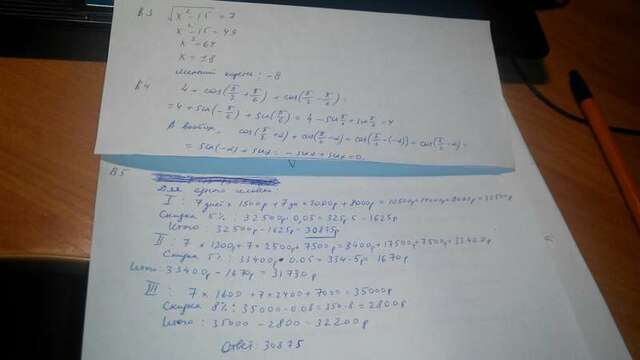 В3 √x²-15 = 7
x²-15 = 49
x² = 64
x = ±8
меньший корень: -8
В4 4 + cos(π/2 + π/6) + cos(π/2 - π/6) =
= 4 + sin(-π/6) + sin(π/6) = 4 - sin π/6 + sin π/6 = 4
В общем, cos(π/2 + α) + cos(π/2 - α) = cos(π/2 - (-α)) + cos(π/2 - α) =
= sin(-α) + sin α = - sin α + sin α = 0.
В5
Для одного
I : 7 дней × 1500р + 7 дн × 2000р + 8000р = 10500р+14000р+8000р = 32500р
Скидка 5% : 32500·0,05 = 325·5 = 1625р
Итого : 32500р - 1625р = 30875р
II : 7 × 1200р + 7 × 2500р + 7500р = 8400р + 17500р + 7500р = 33400р
Скидка 5% : 33400р · 0.05 = 334·5р = 1670р
Итого : 33400р - 1670р = 31730р
III : 7 × 1600 + 7 × 2400 + 7000 = 35000р
Скидка 8% : 35000·0.08 = 350·8 = 2800р
Итого : 35000 - 2800 = 32200р
Ответ: 30875